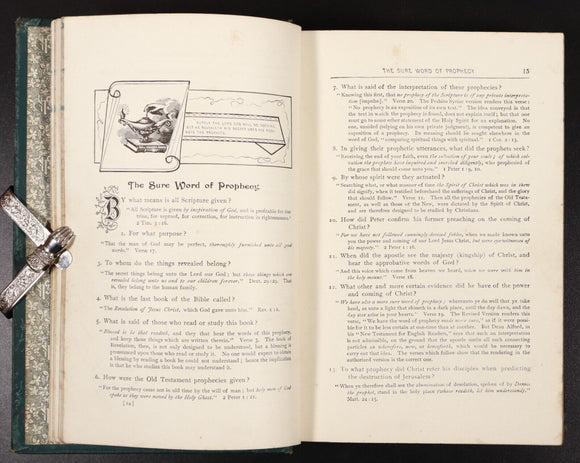 SURELY THE LORD GOD WILL DO NOTHING,
BUT HE REVEALETH HIS SECRET UNTO HIS
The Sure Word of Prophecy.
BY what means is all Scripture given?
"All Scripture is given by inspiration of God, and is profitable for doctrine, for reproof, for correction, for instruction in righteousness."
2 Tim. 3:16.
2. For what purpose?
"That the man of God may be perfect, thoroughly furnished unto all good
works." Verse 17.
3. To whom do the things revealed belong?
"The secret things belong unto the Lord our God; but those things which are
revealed belong unto us and to our children forever." Deut. 29:29. That
is, they belong to the human family.
4. What is the last book of the Bible called?
"The Revelation of Jesus Christ, which God gave unto him." Rev. 1:1.
5. What is said of those who read or study this book?
"Blessed is he that readeth, and they that hear the words of this prophecy,
and keep those things which are written therein." Verse 3. The book of
Revelation, then, is not only designed to be understood, but a blessing is
pronounced upon those who read or study it. No one would expect to obtain
a blessing by reading a book he could not understand; hence the implication
is that he who studies this book may understand it.
6. How were the Old Testament prophecies given?
"For the prophecy came not in old time by the will of man; but holy men of God
spake as they were moved by the Holy Ghost." 2 Peter 1:21.
THE SURE WORD OF PROPHECY 15
7. What is said of the interpretation of these prophecies?
"Knowing this first, that no prophecy of the Scripture is of any private interpretation
." Verse 20. The Peshito Syriac version renders this verse:
"No prophecy is an exposition of its own text." The idea conveyed is that
the text in which the prophecy is found, does not explain itself; but that one
must go to some other statement of the Holy Spirit for an explanation. No
one, unaided (relying on his own private judgment), is competent to give an
exposition of a prophecy. Its meaning should be sought elsewhere in the
word of God, "comparing spiritual things with spiritual." 1 Cor. 2:13.
8. In giving their prophetic utterances, what did the prophets seek?
"Receiving the end of your faith, even the salvation of your souls; of which salvation
the prophets have inquired and searched diligently, who prophesied of
the grace that should come unto you." 1 Peter 1:9, 10.
9. By whose spirit were they actuated?
"Searching what, or what manner of time the Spirit of Christ which was in them
did signify, when it testified beforehand the sufferings of Christ, and the glory
that should follow." Verse 11. Then all the prophecies of the Old Testament,
as well as those of the New, were dictated by the Spirit of Christ,
and are therefore designed to be studied by Christians.
10. How did Peter confirm his former preaching on the coming of
Christ?
"For we have not followed cunningly devised fables, when we made known unto
you the power and coming of our Lord Jesus Christ, but were eyewitnesses
of his majesty." 2 Peter 1:16.
11. When did the apostle see the majesty (kingship) of Christ, and
hear the approbative words of God?
"And this voice which came from heaven we heard, when we were with him in
the holy mount." Verse 18.
12. What other and more certain evidence did he have of the power
and coming of Christ?
"We have also a more sure word of prophecy; whereunto ye do well that ye take
heed, as unto a light that shineth in a dark place, until the day dawn, and the
day star arise in your hearts." Verse 19. The Revised version renders this
verse, "We have the word of prophecy made more sure," as if it were possible
for it to be less certain at one time than at another. But Dean Alford, in
his "New Testament for English Readers," says that such an interpretation
is not admissible, on the ground that the apostle omits all such connecting
particles as wherefore, now, or henceforth, which would be necessary to
carry out that idea. The verses which follow show that the rendering in the
authorized version is the correct one.
13. To what prophecy did Christ refer his disciples when predicting
the destruction of Jerusalem?
"When ye therefore shall see the abomination of desolation, spoken of by Daniel
the prophet, stand in the holy place (whoso readeth, let him understand)."
Matt. 24:15.